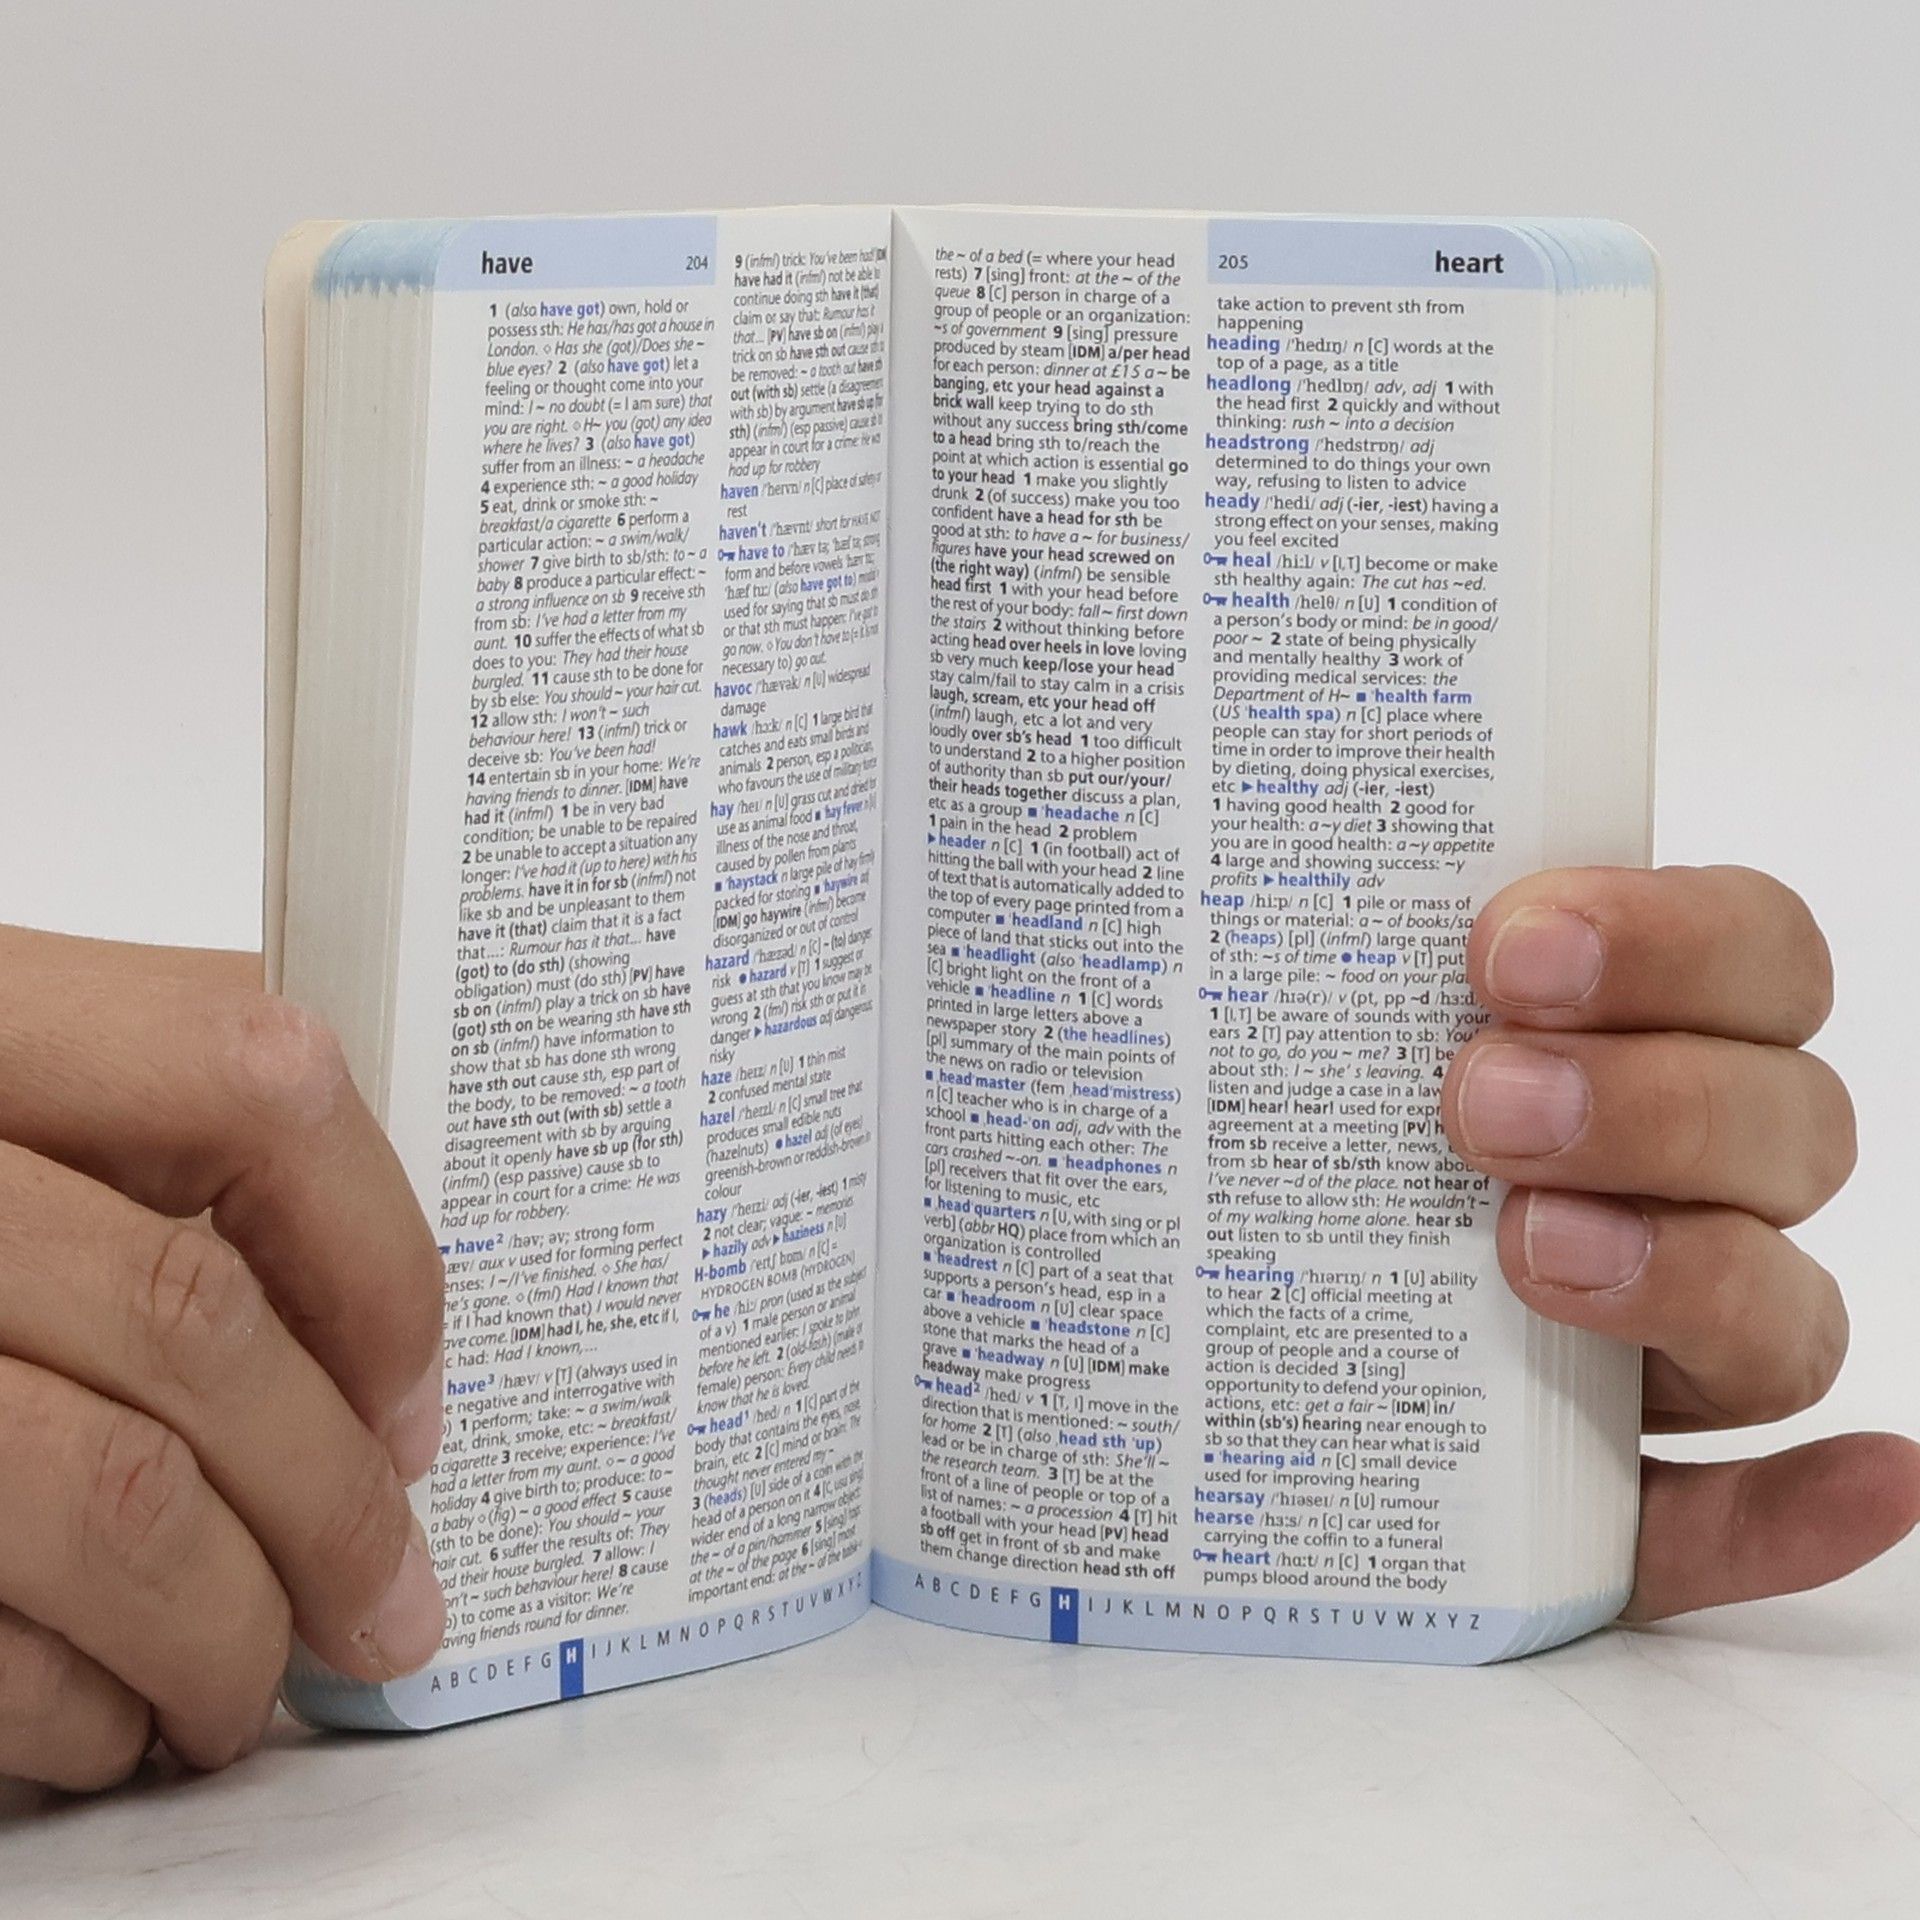 have
204
1 (also have got) own, hold or
possess sth: He has/has got a house in
London. ◇ Has she (got)/Does she ~
blue eyes? 2 (also have got) let a
feeling or thought come into your
mind: I ~ no doubt (= I am sure) that
you are right. ◇ H~ you (got) any idea
where he lives? 3 (also have got)
suffer from an illness: ~ a headache
4 experience sth: ~ a good holiday
5 eat, drink or smoke sth: ~
breakfast/a cigarette 6 perform a
particular action: ~ a swim/walk/
shower 7 give birth to sb/sth: to ~ a
baby 8 produce a particular effect: ~
a strong influence on sb 9 receive sth
from sb: I've had a letter from my
aunt. 10 suffer the effects of what sb
does to you: They had their house
burgled. 11 cause sth to be done for
by sb else: You should ~ your hair cut.
12 allow sth: I won't ~ such
behaviour here! 13 (infml) trick or
deceive sb: You've been had!
14 entertain sb in your home: We're
having friends to dinner. [IDM] have
had it (infml) 1 be in very bad
condition; be unable to be repaired
2 be unable to accept a situation any
longer: I've had it (up to here) with his
problems. have it in for sb (infml) not
like sb and be unpleasant to them
have it (that) claim that it is a fact
that...: Rumour has it that... have
(got) to (do sth) (showing
obligation) must (do sth) [PV] have
sb on (infml) play a trick on sb have
(got) sth on be wearing sth have sth
on sb (infml) have information to
show that sb has done sth wrong
have sth out cause sth, esp part of
the body, to be removed: ~ a tooth
out have sth out (with sb) settle a
disagreement with sb by arguing
about it openly have sb up (for sth)
(infml) (esp passive) cause sb to
appear in court for a crime: He was
had up for robbery.
have² /həv; əv; strong form
æv/ aux v used for forming perfect
enses: I ~/I've finished. ◇ She has/
he's gone. ◇ (fml) Had I known that
= if I had known that) I would never
ave come. [IDM] had I, he, she, etc if I,
c had: Had I known,...
have³ /hæv/ v [T] (always used in
e negative and interrogative with
) 1 perform; take: ~ a swim/walk
eat, drink, smoke, etc: ~ breakfast/
a cigarette 3 receive; experience: I've
had a letter from my aunt. ◇ ~ a good
holiday 4 give birth to; produce: to ~
a baby ◇ (fig) ~ a good effect 5 cause
(sth to be done): You should ~ your
hair cut. 6 suffer the results of: They
ad their house burgled. 7 allow: I
on't ~ such behaviour here! 8 cause
b) to come as a visitor: We're
aving friends round for dinner.
9 (infml) trick: You've been had!
have had it (infml) not be able to
continue doing sth have it (that)
claim or say that: Rumour has it
that... [PV] have sb on (infml) play a
trick on sb have sth out cause sth to
be removed: ~ a tooth out have sth
out (with sb) settle (a disagreement
with sb) by argument have sb up (for
sth) (infml) (esp passive) cause sb to
appear in court for a crime: He was
had up for robbery
haven /ˈheɪvn/ n [C] place of safety or
rest
haven't /ˈhævnt/ short for HAVE NOT
have to /ˈhæv tə; ˈhæf tə; strong
form and before vowels ˈhæv tuː;
ˈhæf tuː/ (also have got to) modal
used for saying that sb must do sth
or that sth must happen: I've got to
go now. ◇ You don't have to (= it is not
necessary to) go out.
havoc /ˈhævək/ n [U] widespread
damage
hawk /hɔːk/ n [C] 1 large bird that
catches and eats small birds and
animals 2 person, esp a politician,
who favours the use of military force
hay /heɪ/ n [U] grass cut and dried for
use as animal food ■ ˈhay fever n [U]
illness of the nose and throat,
caused by pollen from plants
■ ˈhaystack n large pile of hay firmly
packed for storing ■ ˈhaywire adj
[IDM] go haywire (infml) become
disorganized or out of control
hazard /ˈhæzəd/ n [C] ~ (to) danger;
risk ● hazard v [T] 1 suggest or
guess at sth that you know may be
wrong 2 (fml) risk sth or put it in
danger ▶ hazardous adj dangerous;
risky
haze /heɪz/ n [U] 1 thin mist
2 confused mental state
hazel /ˈheɪzl/ n [C] small tree that
produces small edible nuts
(hazelnuts) ● hazel adj (of eyes)
greenish-brown or reddish-brown in
colour
hazy /ˈheɪzi/ adj (-ier, -iest) 1 misty
2 not clear; vague: ~ memories
▶ hazily adv ▶ haziness n [U]
H-bomb /ˈeɪtʃ bɒm/ n [C] =
HYDROGEN BOMB (HYDROGEN)
he /hiː/ pron (used as the subject
of a v) 1 male person or animal
mentioned earlier: I spoke to John
before he left. 2 (old-fash) (male or
female) person: Every child needs to
know that he is loved.
head¹ /hed/ n 1 [C] part of the
body that contains the eyes, nose,
brain, etc 2 [C] mind or brain: The
thought never entered my ~.
3 (heads) [U] side of a coin with the
head of a person on it 4 [C, usu sing]
wider end of a long narrow object:
the ~ of a pin/hammer 5 [sing] top:
at the ~ of the page 6 [sing] most
important end: at the ~ of the table ◇
A B C D E F G H I J K L M N O P Q R S T U V W X Y Z
the ~ of a bed (= where your head
rests) 7 [sing] front: at the ~ of the
queue 8 [C] person in charge of a
group of people or an organization:
~s of government 9 [sing] pressure
produced by steam [IDM] a/per head
for each person: dinner at £15 a ~ be
banging, etc your head against a
brick wall keep trying to do sth
without any success bring sth/come
to a head bring sth to/reach the
point at which action is essential go
to your head 1 make you slightly
drunk 2 (of success) make you too
confident have a head for sth be
good at sth: to have a ~ for business/
figures have your head screwed on
(the right way) (infml) be sensible
head first 1 with your head before
the rest of your body: fall ~ first down
the stairs 2 without thinking before
acting head over heels in love loving
sb very much keep/lose your head
stay calm/fail to stay calm in a crisis
laugh, scream, etc your head off
(infml) laugh, etc a lot and very
loudly over sb's head 1 too difficult
to understand 2 to a higher position
of authority than sb put our/your/
their heads together discuss a plan,
etc as a group ■ ˈheadache n [C]
1 pain in the head 2 problem
▶ header n [C] 1 (in football) act of
hitting the ball with your head 2 line
of text that is automatically added to
the top of every page printed from a
computer ■ ˈheadland n [C] high
piece of land that sticks out into the
sea ■ ˈheadlight (also ˈheadlamp) n
[C] bright light on the front of a
vehicle ■ ˈheadline n 1 [C] words
printed in large letters above a
newspaper story 2 (the headlines)
[pl] summary of the main points of
the news on radio or television
■ ˌheadˈmaster (fem ˌheadˈmistress)
n [C] teacher who is in charge of a
school ■ ˌhead-ˈon adj, adv with the
front parts hitting each other: The
cars crashed ~-on. ■ ˈheadphones n
[pl] receivers that fit over the ears,
for listening to music, etc
■ ˌheadˈquarters n [U, with sing or pl
verb] (abbr HQ) place from which an
organization is controlled
■ ˈheadrest n [C] part of a seat that
supports a person's head, esp in a
car ■ ˈheadroom n [U] clear space
above a vehicle ■ ˈheadstone n [C]
stone that marks the head of a
grave ■ ˈheadway n [U] [IDM] make
headway make progress
head² /hed/ v 1 [T, I] move in the
direction that is mentioned: ~ south/
for home 2 [T] (also ˌhead sth ˈup)
lead or be in charge of sth: She'll ~
the research team. 3 [T] be at the
front of a line of people or top of a
list of names: ~ a procession 4 [T] hit
a football with your head [PV] head
sb off get in front of sb and make
them change direction head sth off
205
heart
take action to prevent sth from
happening
heading /ˈhedɪŋ/ n [C] words at the
top of a page, as a title
headlong /ˈhedlɒŋ/ adv, adj 1 with
the head first 2 quickly and without
thinking: rush ~ into a decision
headstrong /ˈhedstrɒŋ/ adj
determined to do things your own
way, refusing to listen to advice
heady /ˈhedi/ adj (-ier, -iest) having a
strong effect on your senses, making
you feel excited
heal /hiːl/ v [I,T] become or make
sth healthy again: The cut has ~ed.
health /helθ/ n [U] 1 condition of
a person's body or mind: be in good/
poor ~ 2 state of being physically
and mentally healthy 3 work of
providing medical services: the
Department of H~ ■ ˈhealth farm
(US ˈhealth spa) n [C] place where
people can stay for short periods of
time in order to improve their health
by dieting, doing physical exercises,
etc ▶ healthy adj (-ier, -iest)
1 having good health 2 good for
your health: a ~y diet 3 showing that
you are in good health: a ~y appetite
4 large and showing success: ~y
profits ▶ healthily adv
heap /hiːp/ n [C] 1 pile or mass of
things or material: a ~ of books/sa
2 (heaps) [pl] (infml) large quant
of sth: ~s of time ● heap v [T] put
in a large pile: ~ food on your pla
hear /hɪə(r)/ v (pt, pp ~d /hɜːd
1 [I,T] be aware of sounds with your
ears 2 [T] pay attention to sb: You'
not to go, do you ~ me? 3 [T] be
about sth: I ~ she's leaving. 4
listen and judge a case in a law
[IDM] hear! hear! used for expr
agreement at a meeting [PV] h
from sb receive a letter, news,
from sb hear of sb/sth know abou
I've never ~d of the place. not hear of
sth refuse to allow sth: He wouldn't ~
of my walking home alone. hear sb
out listen to sb until they finish
speaking
hearing /ˈhɪərɪŋ/ n 1 [U] ability
to hear 2 [C] official meeting at
which the facts of a crime,
complaint, etc are presented to a
group of people and a course of
action is decided 3 [sing]
opportunity to defend your opinion,
actions, etc: get a fair ~ [IDM] in/
within (sb's) hearing near enough to
sb so that they can hear what is said
■ ˈhearing aid n [C] small device
used for improving hearing
hearsay /ˈhɪəseɪ/ n [U] rumour
hearse /hɜːs/ n [C] car used for
carrying the coffin to a funeral
heart /hɑːt/ n [C] 1 organ that
pumps blood around the body
A B C D E F G H I J K L M N O P Q R S T U V W X Y Z